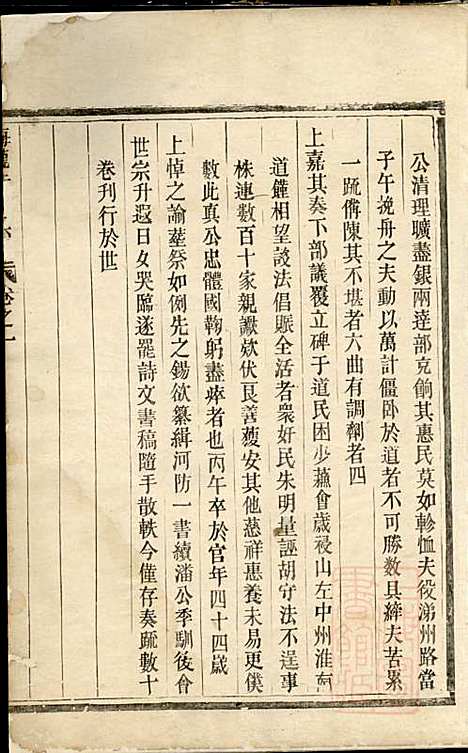 公清理曠盡銀兩達部充餉其惠民莫如軫恤夫役涕州路當
子午挽舟之夫動以萬計僵卧於道者不可勝數具縴夫苦累
一疏備陳其不堪者六曲有調劑者四
上嘉其奏下部議覆立碑于道民困少蘓會歲祲山左中州淮南
道饉相望設法倡賑全活者衆奸民朱明量誣胡守法不逞事
株連數百十家親讞欵伏艮善獲安其他慈祥惠養未易更僕
數此真公忠體國鞠躬盡瘁者也丙午卒於官年四十四歲
上悼之諭塟祭如例先之錫欲纂緝河防一書續潘公季馴後會
世宗升遐日夕哭臨遂罷詩文書稿隨手散軼今僅存奏疏數十
卷刊行於世
卷之一